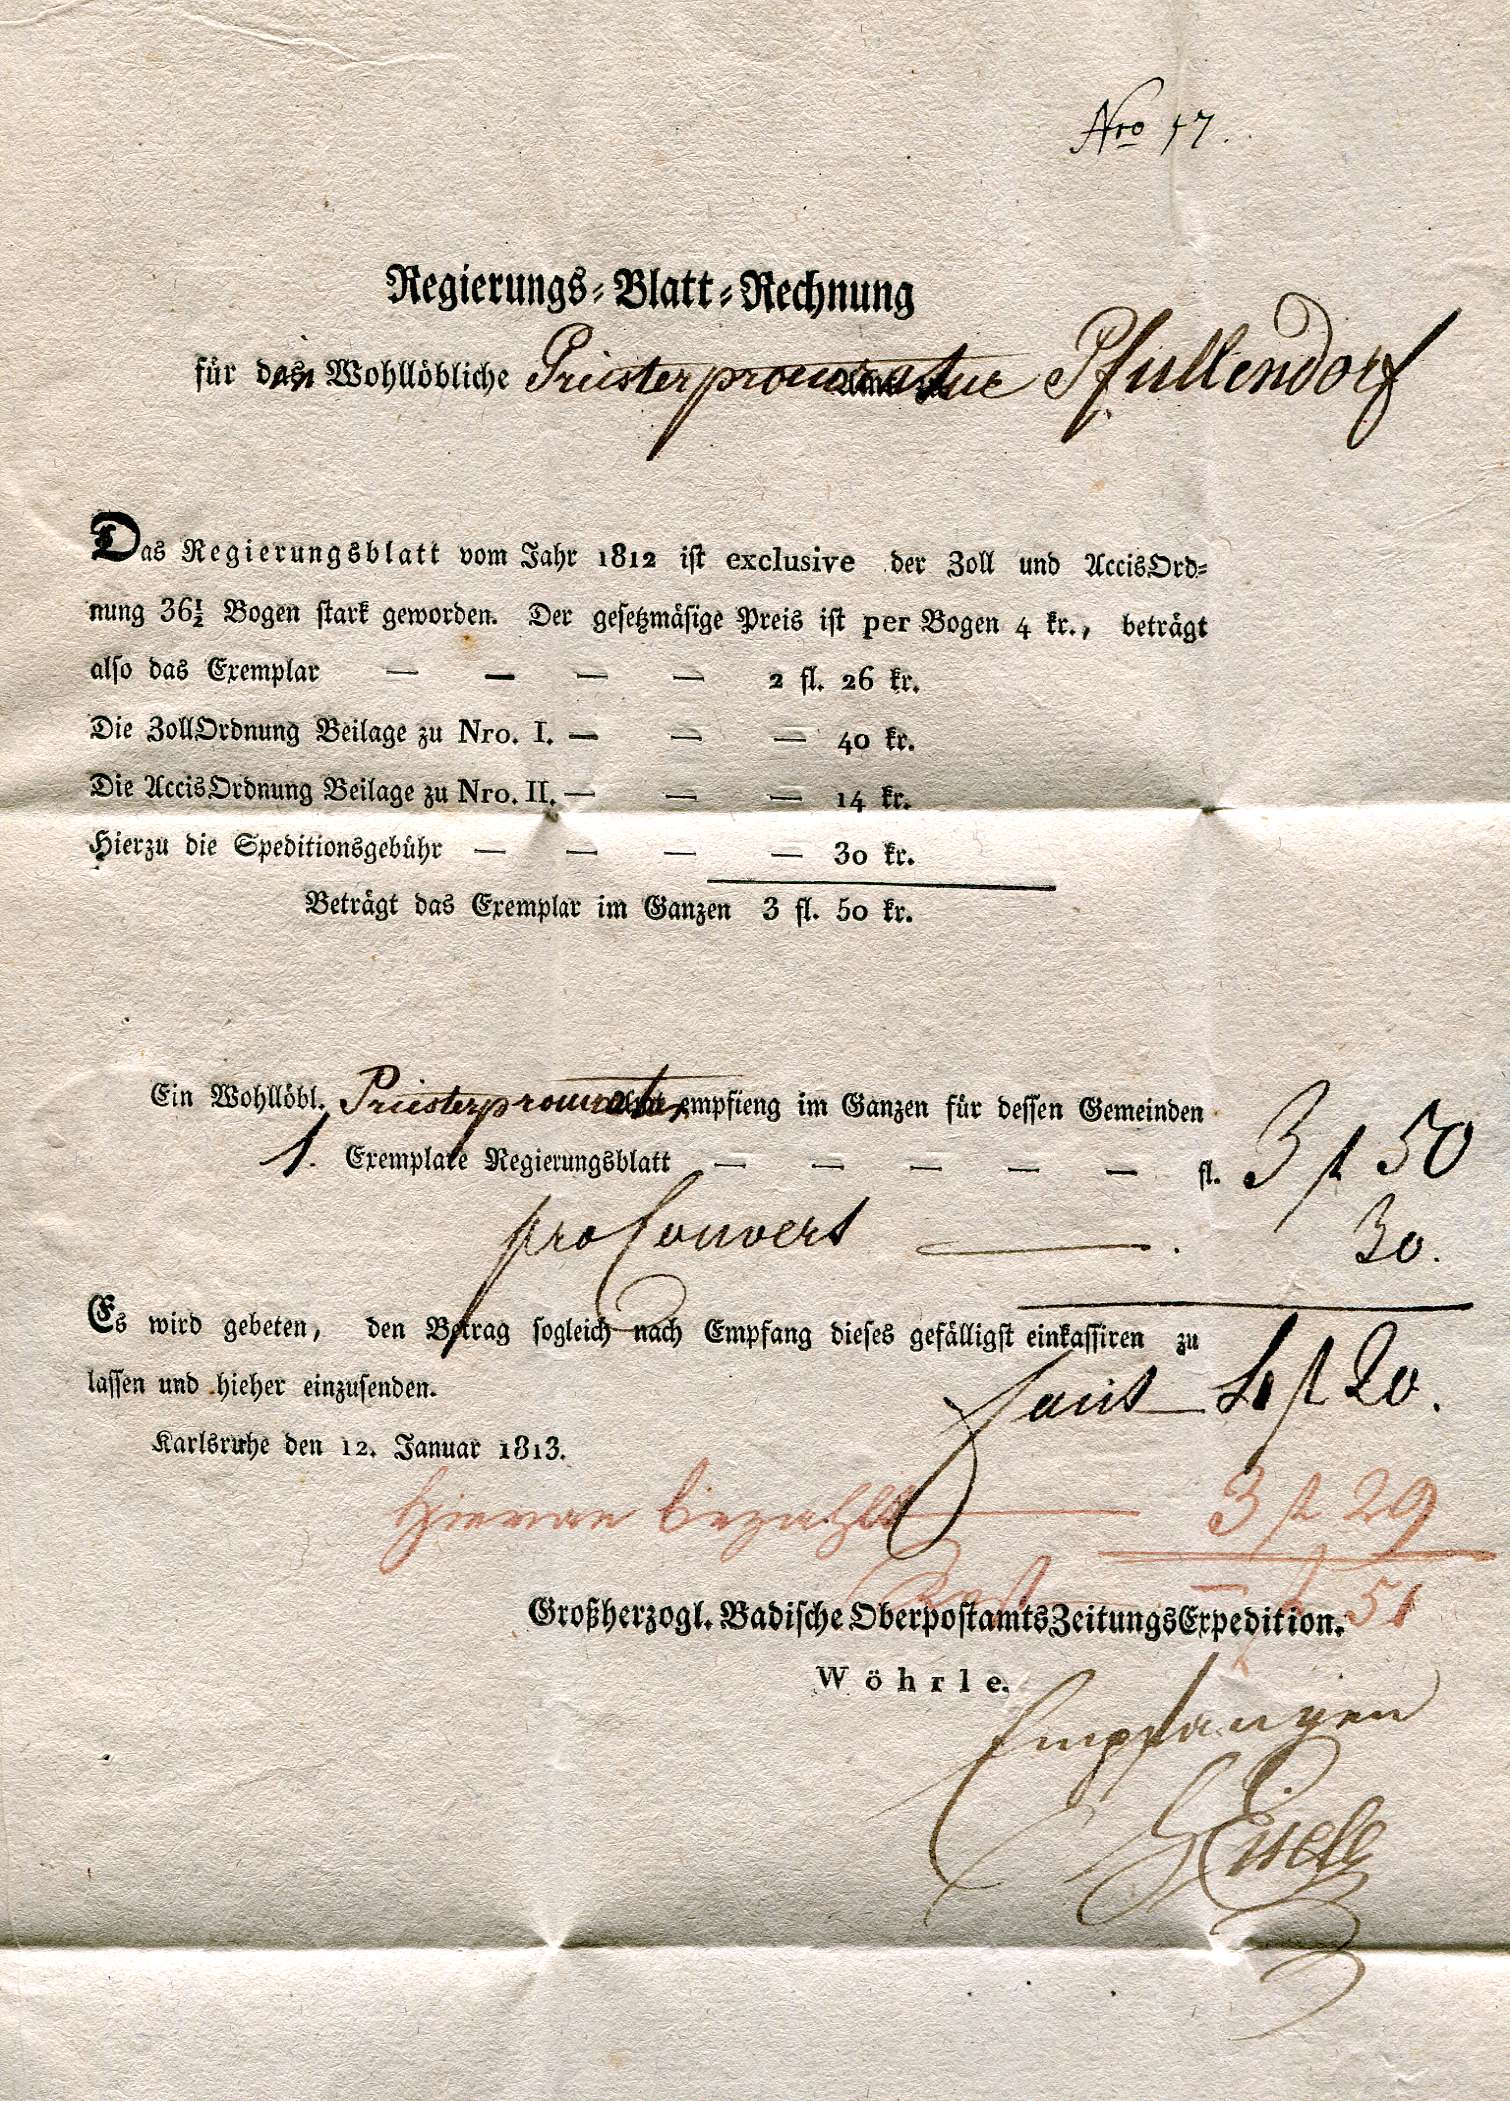 Nro 47.
Regierungs-Blatt-Rechnung
für das Wohllöbliche Priester Pfullendorf
Das Regierungsblatt vom Jahr 1812 ist exclusive der Zoll und AccisOrd-
nung 36½ Bogen stark geworden. Der gesetzmäsige Preis ist per Bogen 4 kr., beträgt
also das Exemplar — — — — 2 fl. 26 kr.
Die ZollOrdnung Beilage zu Nro. I. — — — 40 kr.
Die AccisOrdnung Beilage zu Nro. II. — — — 14 kr.
Hierzu die Speditionsgebühr — — — — 30 kr.
Beträgt das Exemplar im Ganzen 3 fl. 50 kr.
Ein Wohllöbl. empfieng im Ganzen für dessen Gemeinden
1. Exemplare Regierungsblatt — — — — — fl. 3 f 50
pro Couvert — 30.
Es wird gebeten, den Betrag sogleich nach Empfang dieses gefälligst einkassiren zu
lassen und hieher einzusenden.
4 f 20.
Karlsruhe den 12. Januar 1813.
Hieran bezahlt — 3 f 29
Rest — f 51
Großherzogl. Badische OberpostamtsZeitungsExpedition.
Wöhrle.
Empfangen